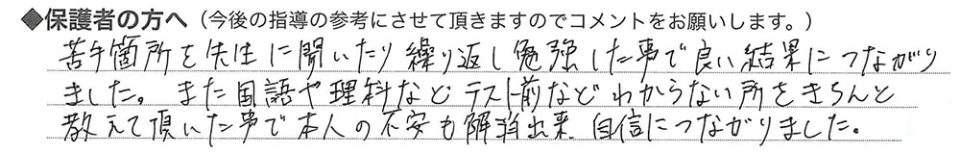 ◆保護者の方へ（今後の指導の参考にさせて頂きますのでコメントをお願いします。）
苦手箇所を先生に聞いたり繰り返し勉強した事で良い結果につながり
ました。また国語や理科などテスト前などわからない所をきちんと
教えて頂いた事で本人の不安も解消出来 自信につながりました。